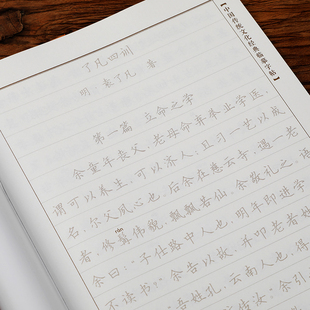 【中国传统文化经典临摹字帖】
了凡四训
明·袁了凡 著
第一篇 立命之学
余童年丧父，老母命弃举业学医，
谓可以养生，可以济人，且习一艺以成
名，尔父夙心也。后余在慈云寺，遇一老
者，修髯伟貌，飘飘若仙，余敬礼之。语
rán
余曰：“子仕路中人也，明年即进学，
不读书？”余告以故，并叩老者姓
吾姓孔，云南人也，得
传汝。”余引